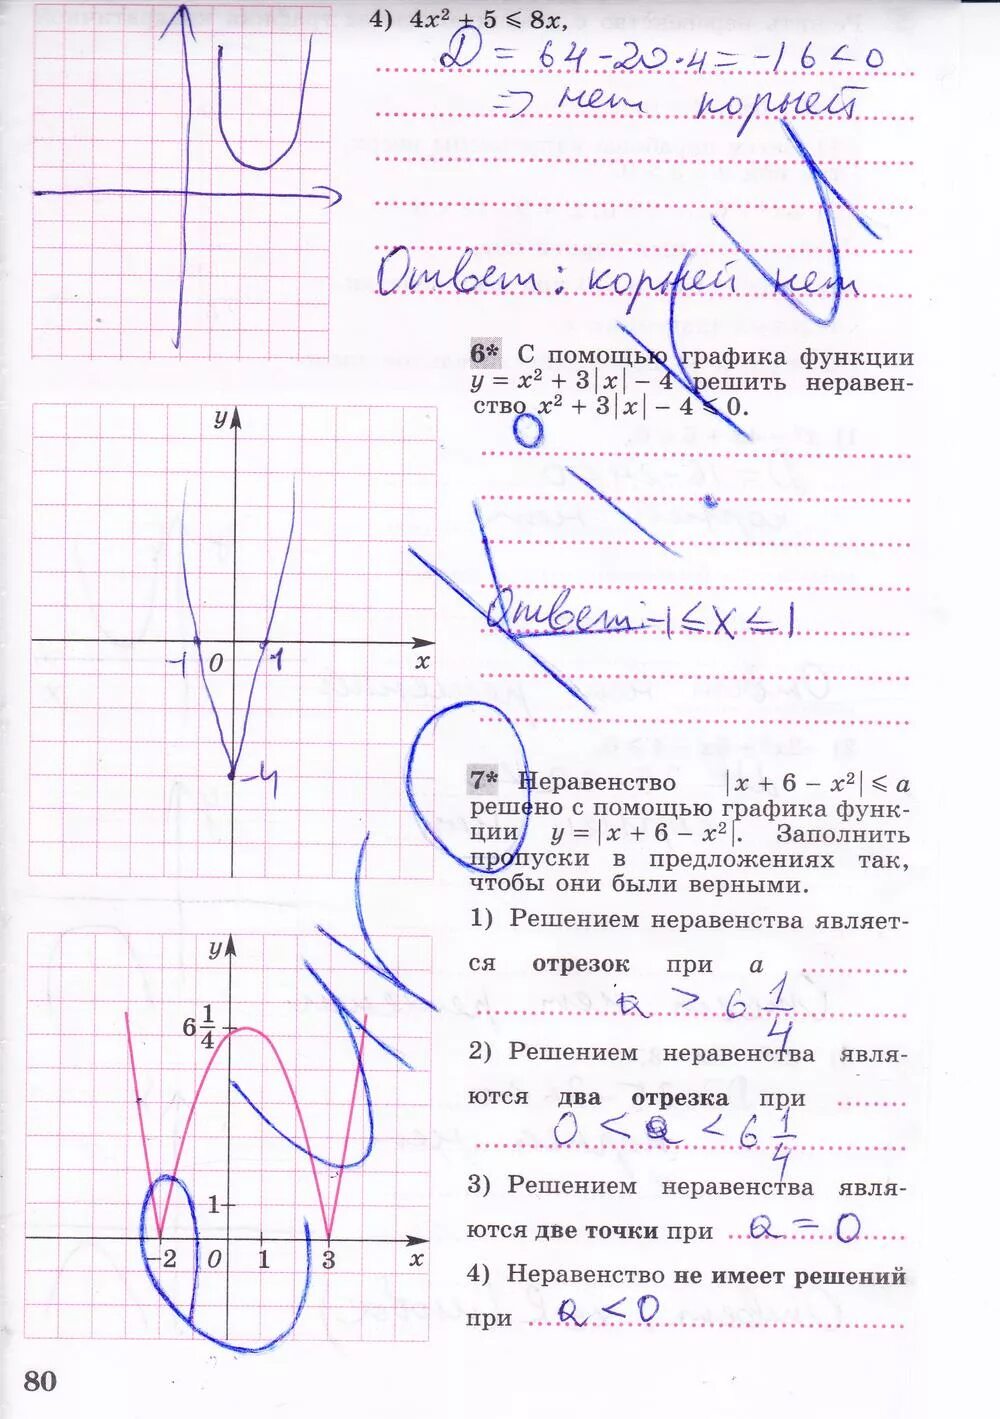 4) 4x² + 5 ⩽ 8x,
D = 64 - 20 · 4 = -16 < 0
⇒ нет корней
Ответ: корней нет
6* С помощью графика функции
y = x² + 3|x| − 4 решить неравен-
ство x² + 3|x| − 4 ⩽ 0.
y
-1 0 1 x
-4
Ответ: -1 ≤ x ≤ 1
7* Неравенство |x + 6 − x²| ⩽ a
решено с помощью графика функ-
ции y = |x + 6 − x²|. Заполнить
пропуски в предложениях так,
чтобы они были верными.
1) Решением неравенства являет-
ся отрезок при a
a > 6 1/4
2) Решением неравенства явля-
ются два отрезка при
0 < a < 6 1/4
3) Решением неравенства явля-
ются две точки при a = 0
4) Неравенство не имеет решений
при a < 0
y
6 1/4
1
−2 0 1 3 x
80